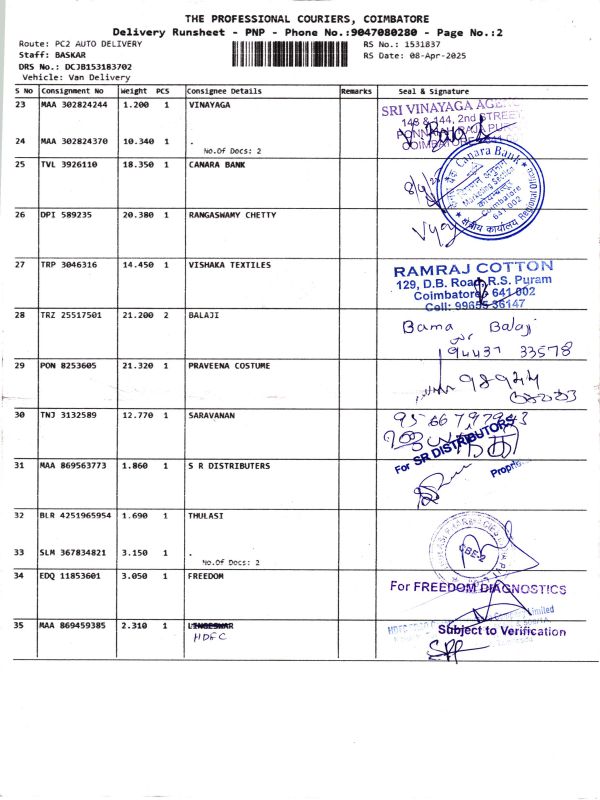 THE PROFESSIONAL COURIERS, COIMBATORE
Delivery Runsheet - PNP - Phone No.:9047080280 - Page No.:2
Route: PC2 AUTO DELIVERY
RS No.: 1531837
Staff: BASKAR
RS Date: 08-Apr-2025
DRS No.: DCJB153183702
Vehicle: Van Delivery
S No Consignment No Weight PCS Consignee Details Remarks Seal & Signature
23 MAA 302824244 1.200 1 VINAYAGA
SRI VINAYAGA
148 & 144, 2nd STREET
COIMBATORE
24 MAA 302824370 10.340 1 .
No.Of Docs: 2
25 TVL 3926110 18.350 1 CANARA BANK
Canara Bank
Marketing Section
Coimbatore
641 002
Regional Office
क्षेत्रीय कार्यालय
26 DPI 589235 20.380 1 RANGASWAMY CHETTY
27 TRP 3046316 14.450 1 VISHAKA TEXTILES
RAMRAJ COTTON
129, D.B. Road, R.S. Puram
Coimbatore - 641 002
Cell: 99655 36147
28 TRZ 25517501 21.200 2 BALAJI
Bama Balaji
94437 33578
29 PON 8253605 21.320 1 PRAVEENA COSTUME
30 TNJ 3132589 12.770 1 SARAVANAN
31 MAA 869563773 1.860 1 S R DISTRIBUTERS
For SR DISTRIBUTORS
32 BLR 4251965954 1.690 1 THULASI
CBE-2
33 SLM 367834821 3.150 1 .
No.Of Docs: 2
34 EDQ 11853601 3.050 1 FREEDOM
For FREEDOM DIAGNOSTICS
35 MAA 869459385 2.310 1 LINGESWAR
HDFC
Limited
Subject to Verification